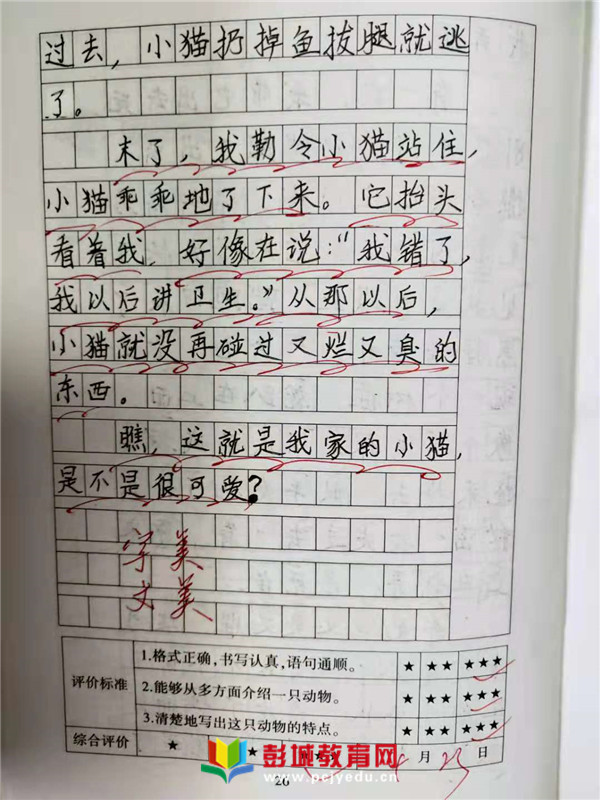 过去，小猫扔掉鱼拔腿就逃
了。
末了，我勒令小猫站住，
小猫乖乖地了下来。它抬头
看着我，好像在说：“我错了，
我以后讲卫生。”从那以后，
小猫就没再碰过又烂又臭的
东西。
瞧，这就是我家的小猫，
是不是很可爱？
字美
文美
评价标准
1.格式正确，书写认真，语句通顺。 ★ ★★ ★★★
2.能够从多方面介绍一只动物。 ★ ★★ ★★★
3.清楚地写出这只动物的特点。 ★ ★★ ★★★
综合评价 ★ 月 日
彭城教育网
www.pcjyedu.cn
26